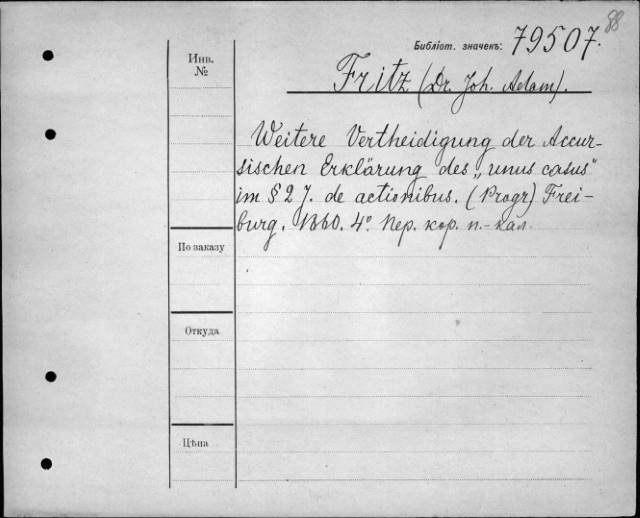 88
Библіот. значекъ: 79507.
Инв.
№
Fritz (Dr. Joh. Adam).
Weitere Vertheidigung der Accur-
sischen Erklärung des „unus casus“
im § 2 J. de actionibus. (Progr) Frei-
burg. 1860. 4º. Пер. кор. п.-кал.
По заказу
Откуда
Цѣна